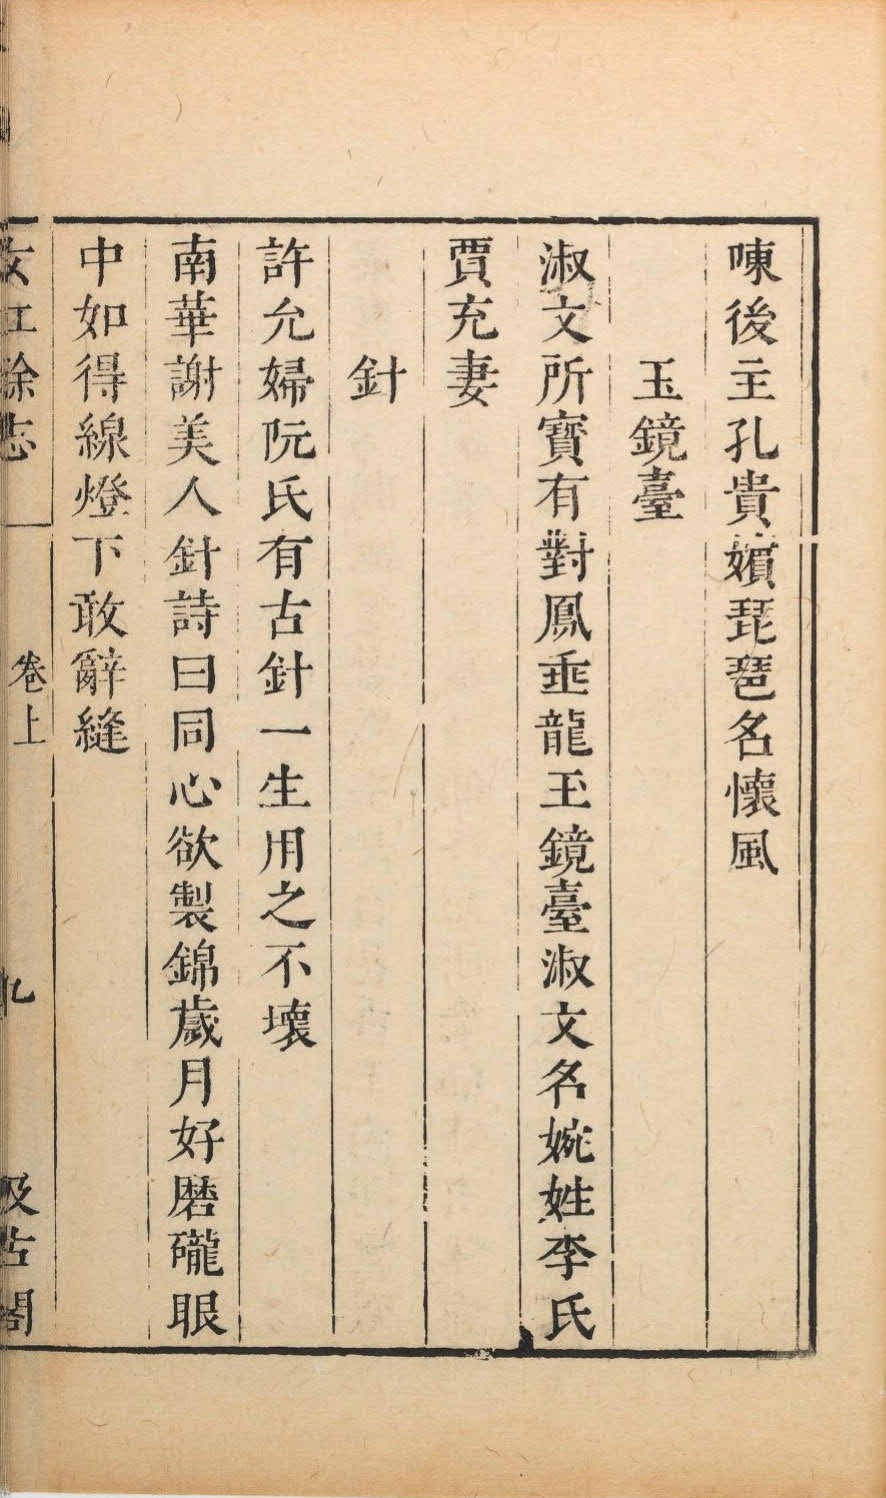 㖦後主孔貴嬪琵琶名懷風
玉鏡臺
淑文所寶有對鳳垂龍玉鏡臺淑文名婉姓李氏
賈充妻
針
許允婦阮氏有古針一生用之不壞
南華謝美人針詩曰同心欲製錦歲月好磨礲眼
中如得線燈下敢辭縫
女紅餘志 卷上 九 汲古閣